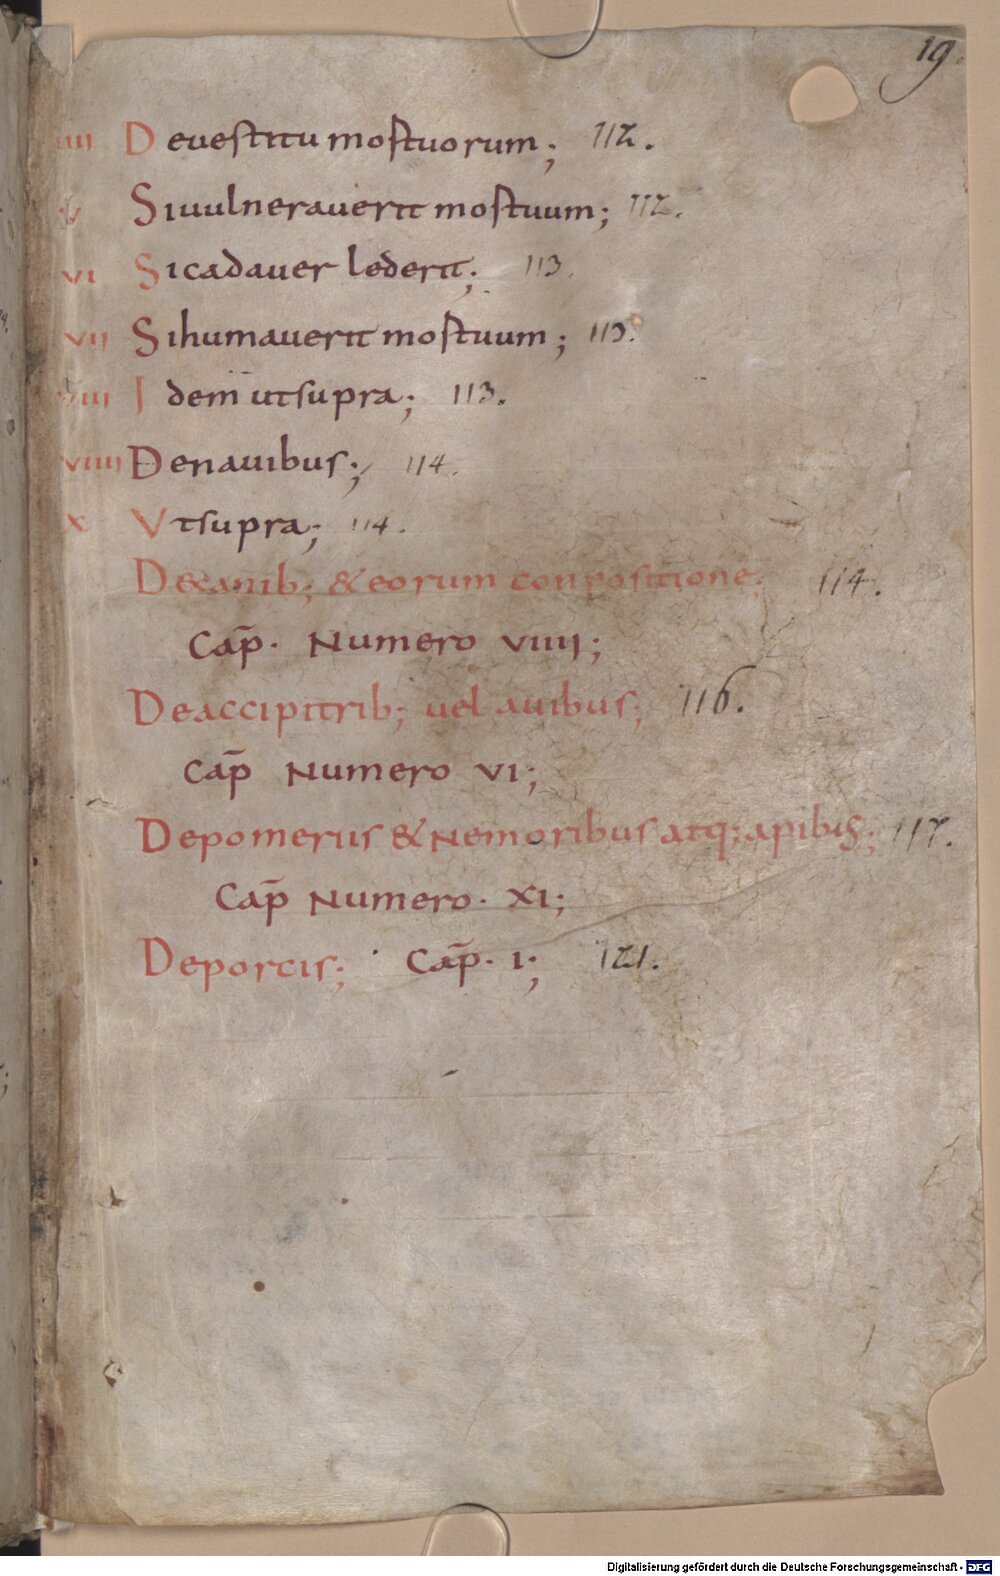 19.
IIII Deuestitu mortuorum; 112.
V Siuulnerauerit mortuum; 112.
VI Sicadauer lederit; 113.
VII Sihumauerit mortuum; 113.
VIII Idem utsupra; 113.
VIIII Denauibus; 114.
X Vtsupra; 114.
De canib; & eorum conpositione; 114.
Cap̄. Numero VIIII;
Deaccipitrib; uel auibus; 116.
Cap̄ Numero VI;
Depomeriis & Nemoribus atq; apibus; 117.
Cap̄ Numero. XI;
Deporcis; Cap̄. I; 121.
Digitalisierung gefördert durch die Deutsche Forschungsgemeinschaft - DFG